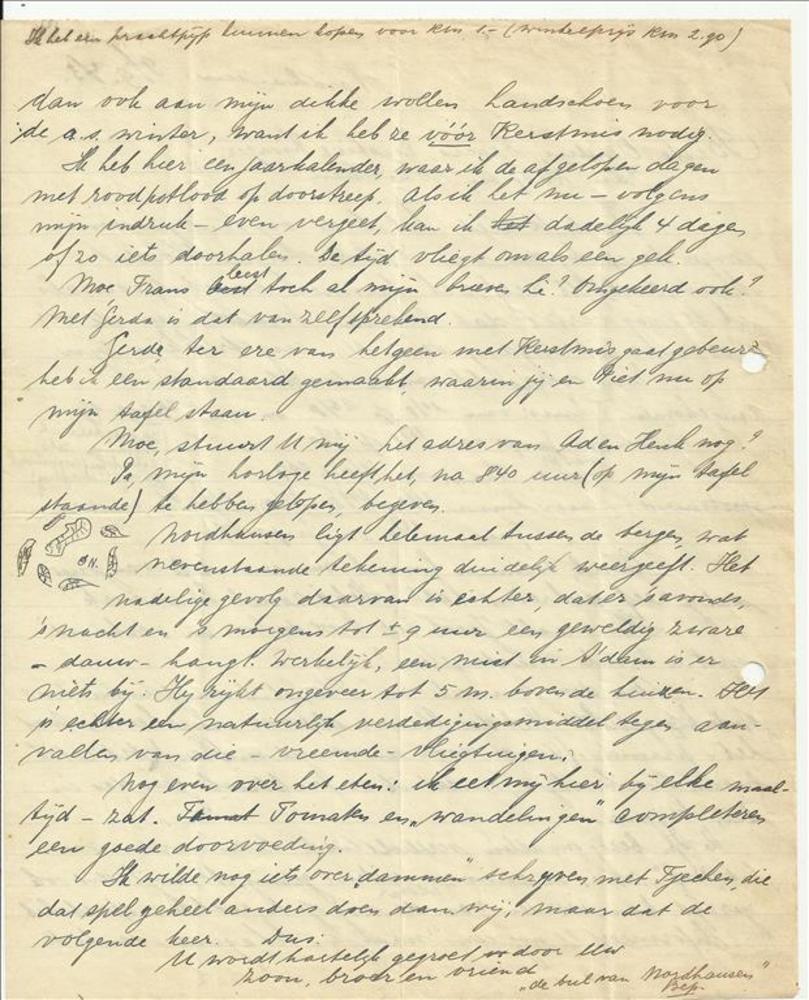 Ik heb een prachtpijp kunnen kopen voor Rm 1.- (winkelprijs Rm 2.90)
dan ook aan mijn dikke wollen handschoen voor
de a.s. winter, want ik heb ze vóór Kerstmis nodig.
Ik heb hier een jaarkalender, waar ik de afgelopen dagen
met roodpotlood op doorstreep. Als ik het nu – volgens
mijn indruk – even vergeet, kan ik dadelijk 4 dagen
of zo iets doorhalen. De tijd vliegt om als een gek.
Moe, Frans leest toch al mijn brieven hè? Omgekeerd ook?
Met Gerda is dat vanzelfsprekend.
Gerda, ter ere van hetgeen met Kerstmis gaat gebeuren
heb ik een standaard gemaakt, waarin jij en Piet nu op
mijn tafel staan.
Moe, stuurt U mij het adres van Ad en Henk nog?
Pa, mijn horloge heeft het, na 840 uur (op mijn tafel
staande) te hebben gelopen, begeven.
Nordhausen ligt helemaal tussen de bergen, wat
N.
nevenstaande tekening duidelijk weergeeft. Het
nadelige gevolg daarvan is echter, dat er 's avonds,
's nachts en 's morgens tot ± 9 uur een geweldig zware
– dauw – hangt. Werkelijk, een mist in A'dam is er
niets bij. Hij rijkt ongeveer tot 5 m. boven de huizen. Het
is echter een natuurlijk verdedigingsmiddel tegen aan-
vallen van die – vreemde – vliegtuigen.
Nog even over het eten: ik eet mij hier bij elke maal-
tijd – zat. Tomaten en „wandelingen” completeren
een goede doorvoeding.
Ik wilde nog iets over „dammen” schrijven met Tjechen, die
dat spel geheel anders doen dan wij, maar dat de
volgende keer. Dus:
U wordt hartelijk gegroet door Uw
zoon, broer en vriend
„de bul van Nordhausen”
Bep.